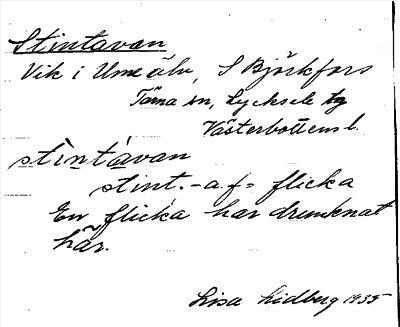 Stintavan
Vik i Ume älv, S Björkfors
Tärna sn, Lycksele tg
Västerbottens l.
stìntàvan
stint. -a. f = flicka
En flicka har drunknat
här.
Lisa Lidberg 1935